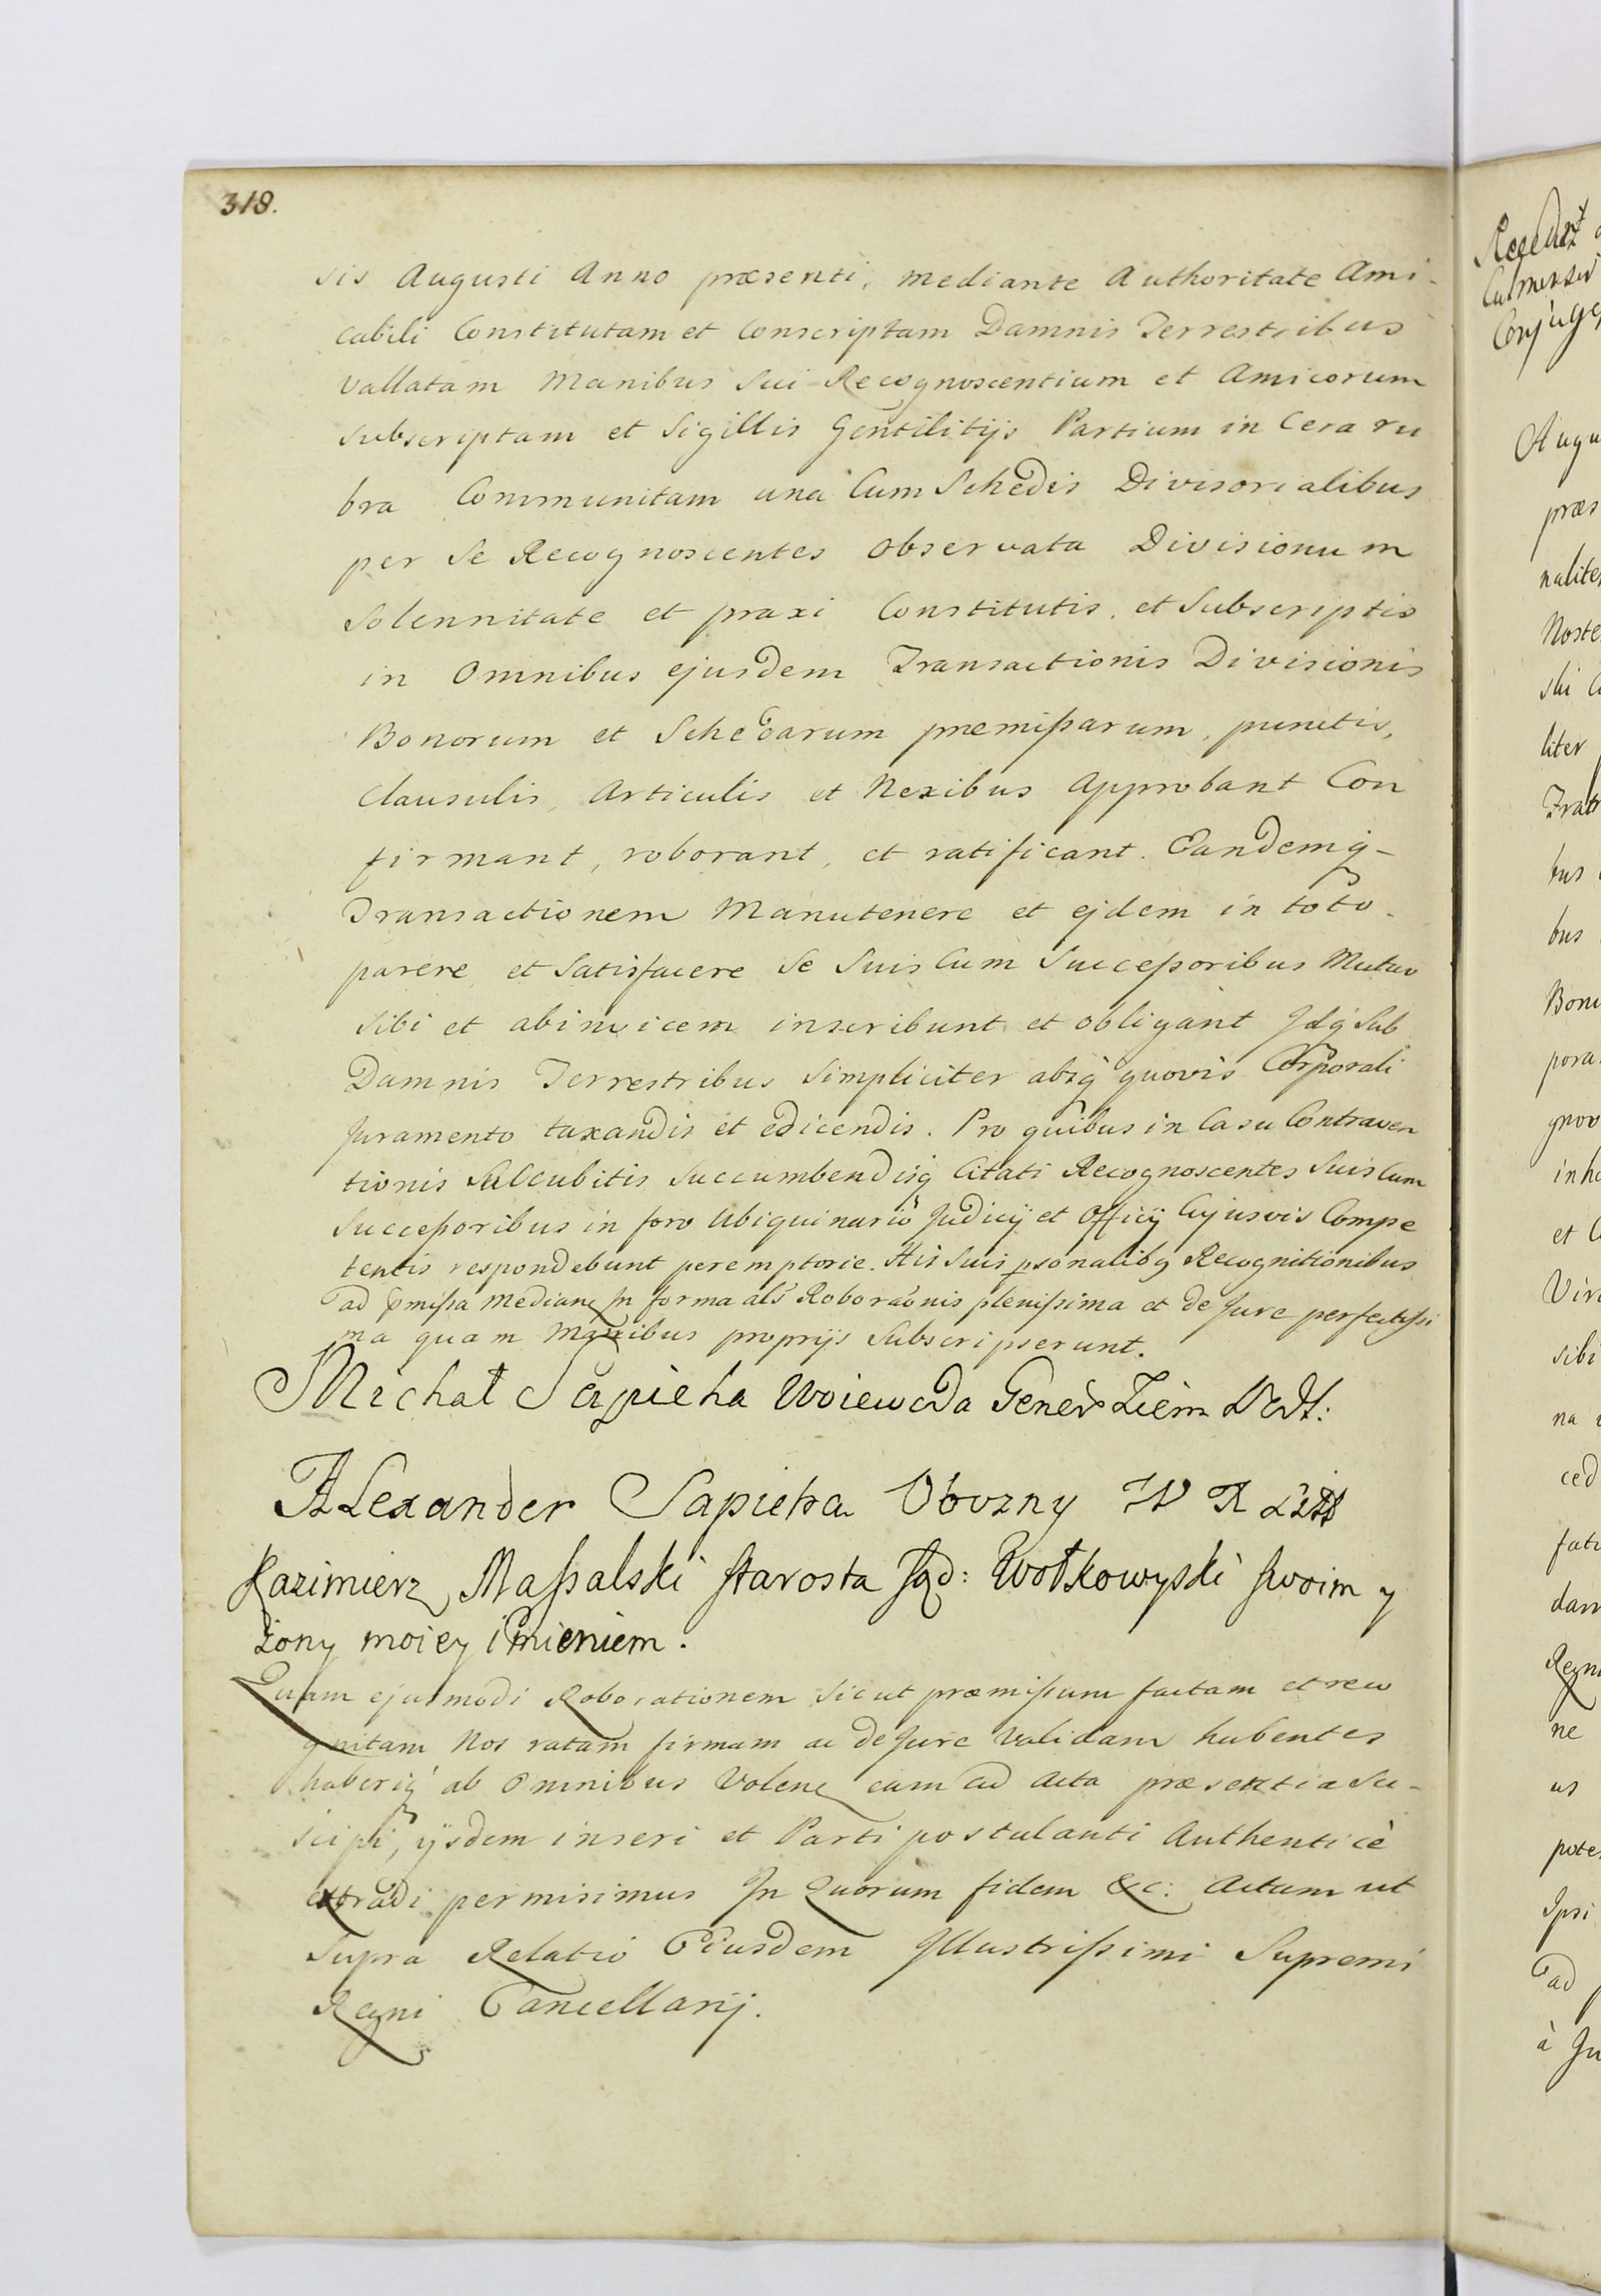 318.
sis Augusti Anno præsenti, mediante Authoritate Ami-
cabili Constitutam et Conscriptam Damnis Terrestribus
Vallatam Manibus Sui Recognoscentium et Amicorum
subscriptam et Sigillis Gentilitijs Partium in Cera ru
bra Communitam una Cum Schedis Divisorialibus
per Se Recognoscentes observata Divisionum
Solennitate et praxi Constitutis, et Subscriptis
in Omnibus ejusdem Transactionis Divisionis
Bonorum et Schedarum præmißarum, punctis,
Clausulis, Articulis et Nexibus Approbant Con
firmant, roborant, et ratificant. Eandemq̃-
Transactionem Manutenere et ejdem in toto-
parere et Satisfacere Se Suis Cum Succeßoribus Mutuo
Sibi et abinvicem inscribunt et obligant Jdq̃ Sub
Damnis Terrestribus Simpliciter absq̃ quovis Corporali
Juramento taxandis et edicendis. Pro quibus in Casu Contraven
tionis Succumbendisq̃ Citati Recognoscentes Suis Cum
Succeßoribus in foro Ubiquinario Judicij et Officij Cujusvis Compe
tentis respondebunt peremptorie. His Suis psonalibq Recognitionibus
ad pmißa Median In forma als Roboraõnis plenißima et de Jure perfectißi
ma quam Manibus proprijs Subscripserunt.
Michał Sapieha Woiewoda Gener Ziem
Alexander Sapieha Obozny W X Litt
Kazimierz Maßalski starosta sąd: Wołkowyski swoim y
żony moiey imieniem.
Quam ejusmodi Roborationem sicut præmißum factam et reco
gnitam Nos ratam firmam ac de Jure Validam habentes
haberiq̃ ab omnibus Volen eam ad Acta præsentia Su-
scipi, ijsdem inseri et Parti postulanti Authenticè
extradi permisimus Jn Quorum fidem &c: Actum ut
Supra Relatio Eiusdem Jllustrißimi Supremi
Regni Cancellarij.
Culmensis
Conjuges
Augu
præs
nalite
Noste
ski
liter
Frat
bus
bus
Bono
pora
gnov
inh
et C
Vir
sibi
na
ced
fat
dam
Regn
ne
us
pote
Ipsi
ad
à Ju